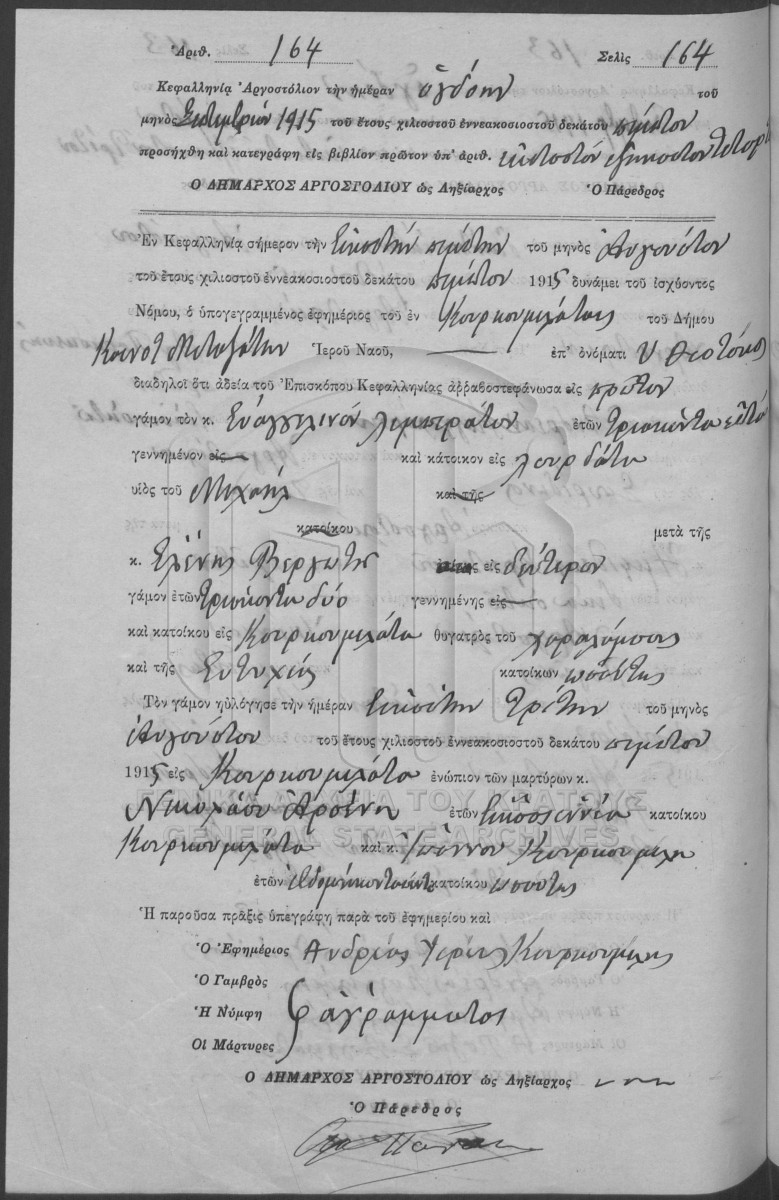 Ἀριθ. 164 Σελὶς 164
Κεφαλληνίᾳ Ἀργοστόλιον τὴν ἡμέραν ὀγδόην τοῦ
μηνὸς Σεπτεμβρίου 1915 τοῦ ἔτους χιλιοστοῦ ἐννεακοσιοστοῦ δεκάτου πέμπτου
προσήχθη καὶ κατεγράφη εἰς βιβλίον πρῶτον ὑπ' ἀριθ. ἑκατοστόν ἑξηκοστόν τέταρτ
Ὁ ΔΗΜΑΡΧΟΣ ΑΡΓΟΣΤΟΛΙΟΥ ὡς Ληξίαρχος Ὁ Πάρεδρος
Ἐν Κεφαλληνίᾳ σήμερον τὴν Εἰκοστήν πέμπτην τοῦ μηνὸς Αὐγούστου
τοῦ ἔτους χιλιοστοῦ ἐννεακοσιοστοῦ δεκάτου πέμπτου 1915 δυνάμει τοῦ ἰσχύοντος
Νόμου, ὁ ὑπογεγραμμένος ἐφημέριος τοῦ ἐν Κουρκουμελάτοις τοῦ Δήμου
Κοινότ Μεταξάτων Ἱεροῦ Ναοῦ, ἐπ' ὀνόματι Υ Θεοτόκος
διαδηλοῖ ὅτι ἀδείᾳ τοῦ Ἐπισκόπου Κεφαλληνίας ἀῤῥαβοστεφάνωσα εἰς πρῶτον
γάμον τὸν κ. Εὐαγγελινόν Λεμπεράτον ἐτῶν Τριάκοντα ἑπτά
γεννημένον εἰς καὶ κάτοικον εἰς Λουρδάτα
υἱὸς τοῦ Μιχαήλ καὶ τῆς
κατοίκου μετὰ τῆς
κ. Ἑλένης Βεργωτη εἰς δεύτερον
γάμον ἐτῶν τριάκοντα δύο γεννημένης εἰς
καὶ κατοίκου εἰς Κουρκουμελάτα θυγατρὸς τοῦ χαραλάμπους
καὶ τῆς Εὐτυχίας κατοίκων
Τὸν γάμον ηὐλόγησε τὴν ἡμέραν Εἰκοστην Τρίτην τοῦ μηνὸς
Αὐγούστου τοῦ ἔτους χιλιοστοῦ ἐννεακοσιοστοῦ δεκάτου πέμπτου
1915 εἰς Κουρκουμελάτα ἐνώπιον τῶν μαρτύρων κ.
Νικολάου Ἀρσένη ἐτῶν Εἰκοσιεννέα κατοίκου
Κουρκουμελάτα καὶ κ. Ἰωάννου Κουρκουμελη
ἐτῶν κατοίκου
Ἡ παροῦσα πρᾶξις ὑπεγράφη παρὰ τοῦ ἐφημερίου καὶ
Ὁ Ἐφημέριος Ἀνδρέας Ἱερεύς Κουρκουμελης
Ὁ Γαμβρὸς
Ἡ Νύμφη ἀγράμματος
Οἱ Μάρτυρες
Ὁ ΔΗΜΑΡΧΟΣ ΑΡΓΟΣΤΟΛΙΟΥ ὡς Ληξίαρχος
Ὁ Πάρεδρος
ΓΕΝΙΚΑ ΑΡΧΕΙΑ ΤΟΥ ΚΡΑΤΟΥΣ
GENERAL STATE ARCHIVES